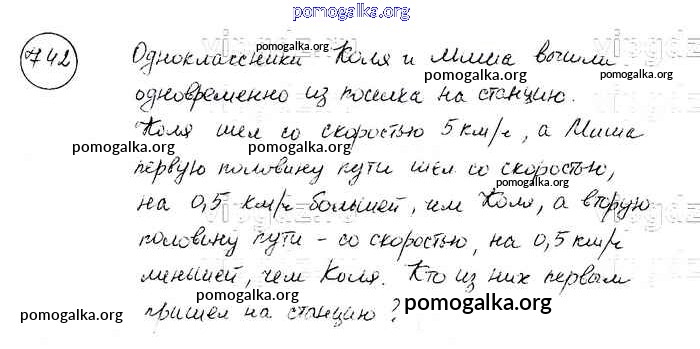 pomogalka.org
742
Одноклассники Коля и Миша вышли
pomogalka.org
pomogalka.org
одновременно из поселка на станцию.
Коля шел со скоростью 5 км/ч, а Миша
pomogalka.org
pomogalka.org
первую половину пути шел со скоростью,
pomogalka.org
на 0,5 км/ч большей, чем Коля, а вторую
pomogalka.org
половину пути – со скоростью, на 0,5 км/ч
меньшей, чем Коля. Кто из них первым
pomogalka.org
pomogalka.org
пришел на станцию?
pomogalka.org